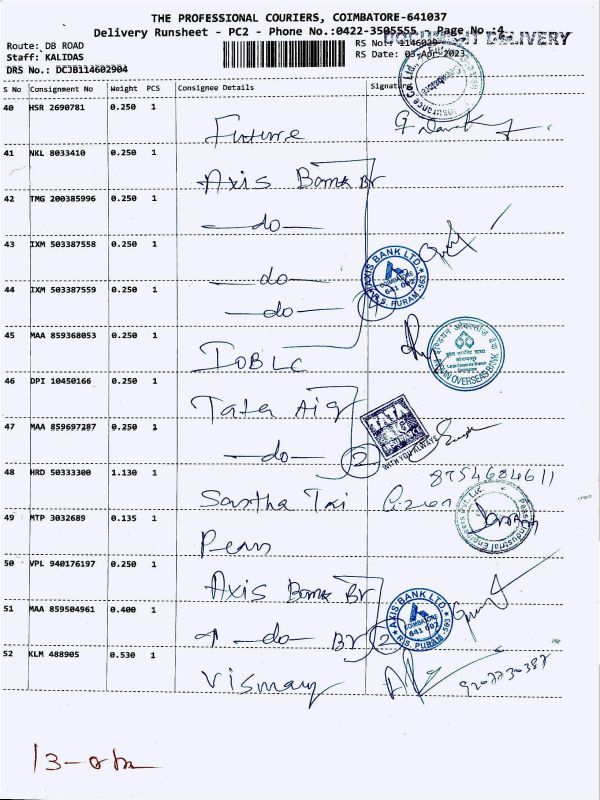 THE PROFESSIONAL COURIERS, COIMBATORE-641037
Delivery Runsheet - PC2 - Phone No.:0422-3505555, Page No.:4
DELIVERY
Route: DB ROAD
RS No.: 1146029
Staff: KALIDAS
RS Date: 03-Apr-2023
DRS No.: DCJB114602904
S No Consignment No Weight PCS Consignee Details Signature
40 HSR 2690781 0.250 1
Future
41 NKL 8033410 0.250 1
Axis Bank Br
42 TMG 200385996 0.250 1
—do—
43 IXM 503387558 0.250 1
—do—
AXIS BANK LTD.
COIMBATORE
641 002
R.S. PURAM
44 IXM 503387559 0.250 1
—do— 4
45 MAA 859368053 0.250 1
IOB LC
INDIAN OVERSEAS BANK
46 DPI 10450166 0.250 1
Tata Aig
47 MAA 859697287 0.250 1
—do— 2
TATA
AIG
WITH YOU ALWAYS
48 HRD 50333300 1.130 1
8754684611
49 MTP 3032689 0.135 1
Industrial Engineers
50 VPL 940176197 0.250 1
Axis Bank Br
51 MAA 859504961 0.400 1
—do— Br 2
AXIS BANK LTD.
COIMBATORE
641 002
R.S. PURAM
52 KLM 488905 0.530 1